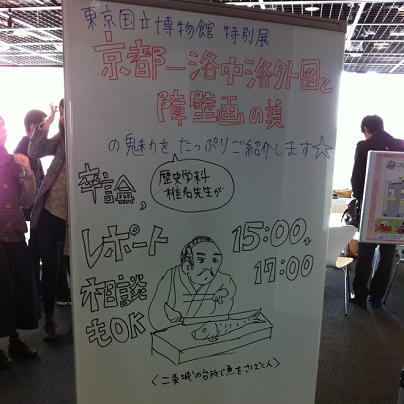 東京国立博物館 特別展
京都―洛中洛外図と
障壁画の美
の魅力をたっぷりご紹介します☆
歴史学科
椎名先生が
卒論、
レポート
相談
もOK
15:00〜
17:00
〈二条城の台所で魚をさばく人〉